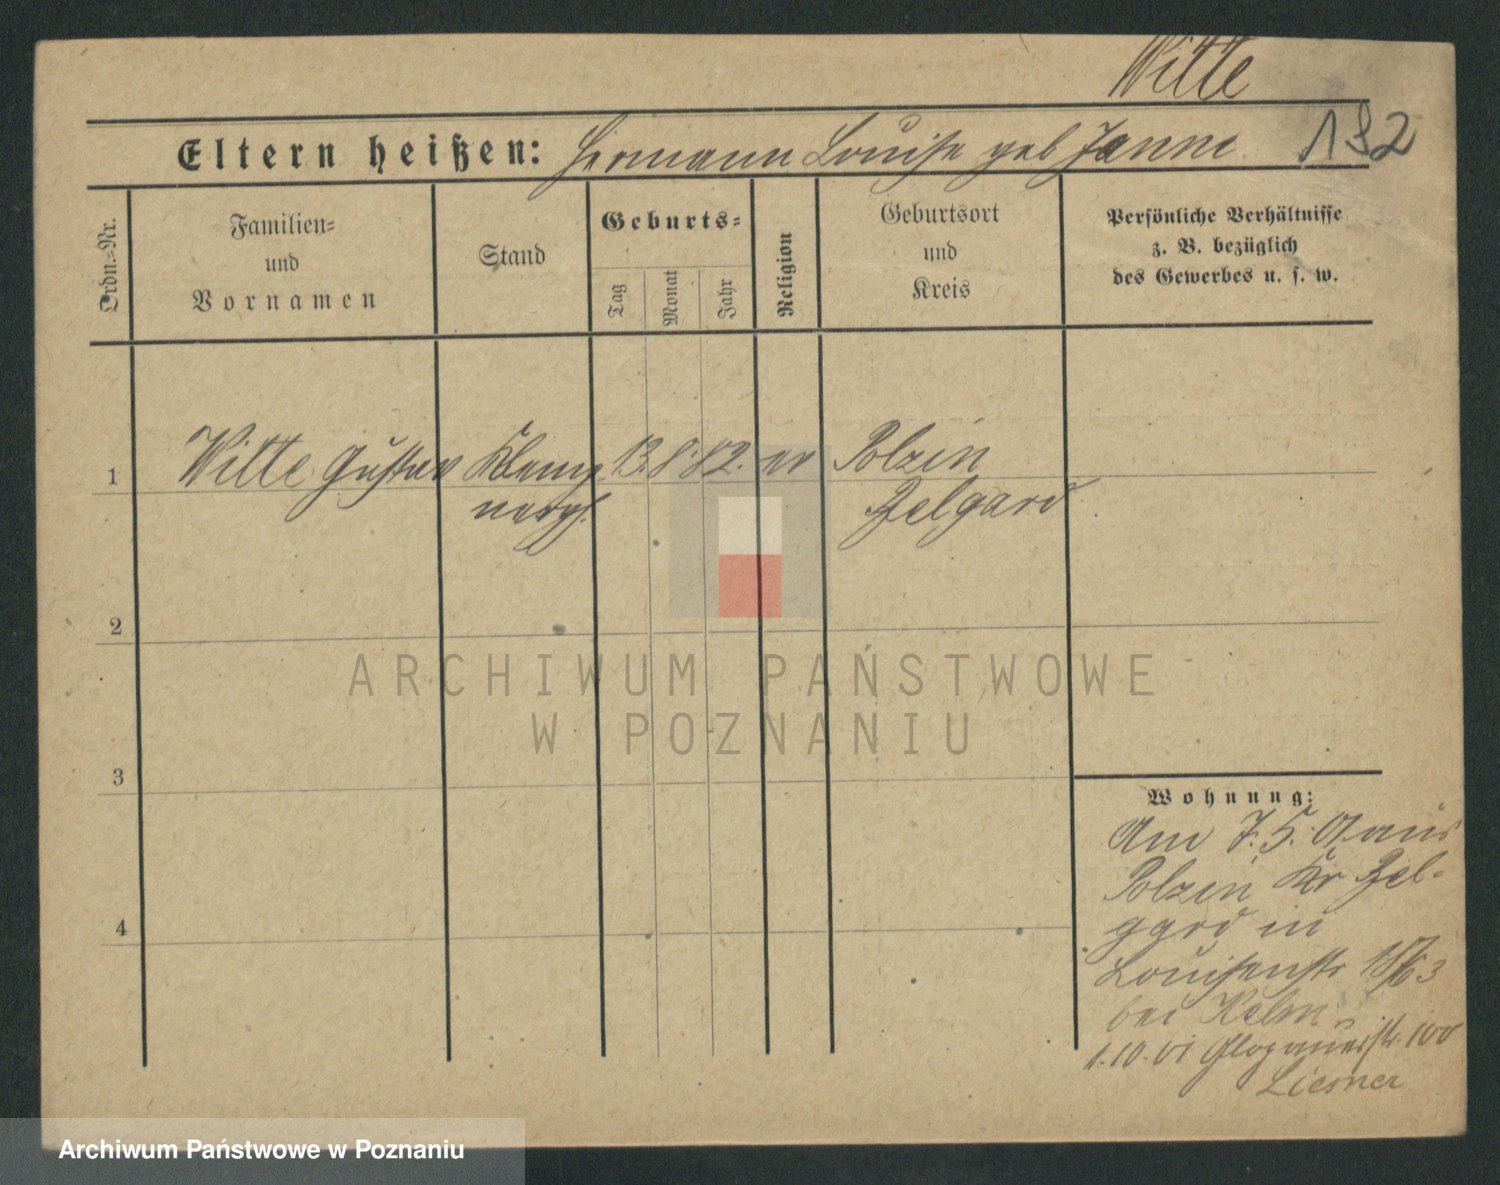 Witte
Eltern heißen: Hermann Louise geb Janne 132
Ordn.-Nr.
Familien-
und
Vornamen
Stand
Geburts-
Tag
Monat
Jahr
Religion
Geburtsort
und
Kreis
Persönliche Verhältnisse
z. B. bezüglich
des Gewerbes u. s. w.
1 Witte Gustav Klemp 13. 8. 82. ev Polzin
nergs. Belgard
2
3
4
Wohnung:
Am 7. 5. 01 aus
Polzin Kr Bel-
gard in
Louisenstr
bei Kelm
1. 10. 01 Glogauerstr. 100
Liesner
ARCHIWUM PAŃSTWOWE
W POZNANIU
Archiwum Państwowe w Poznaniu